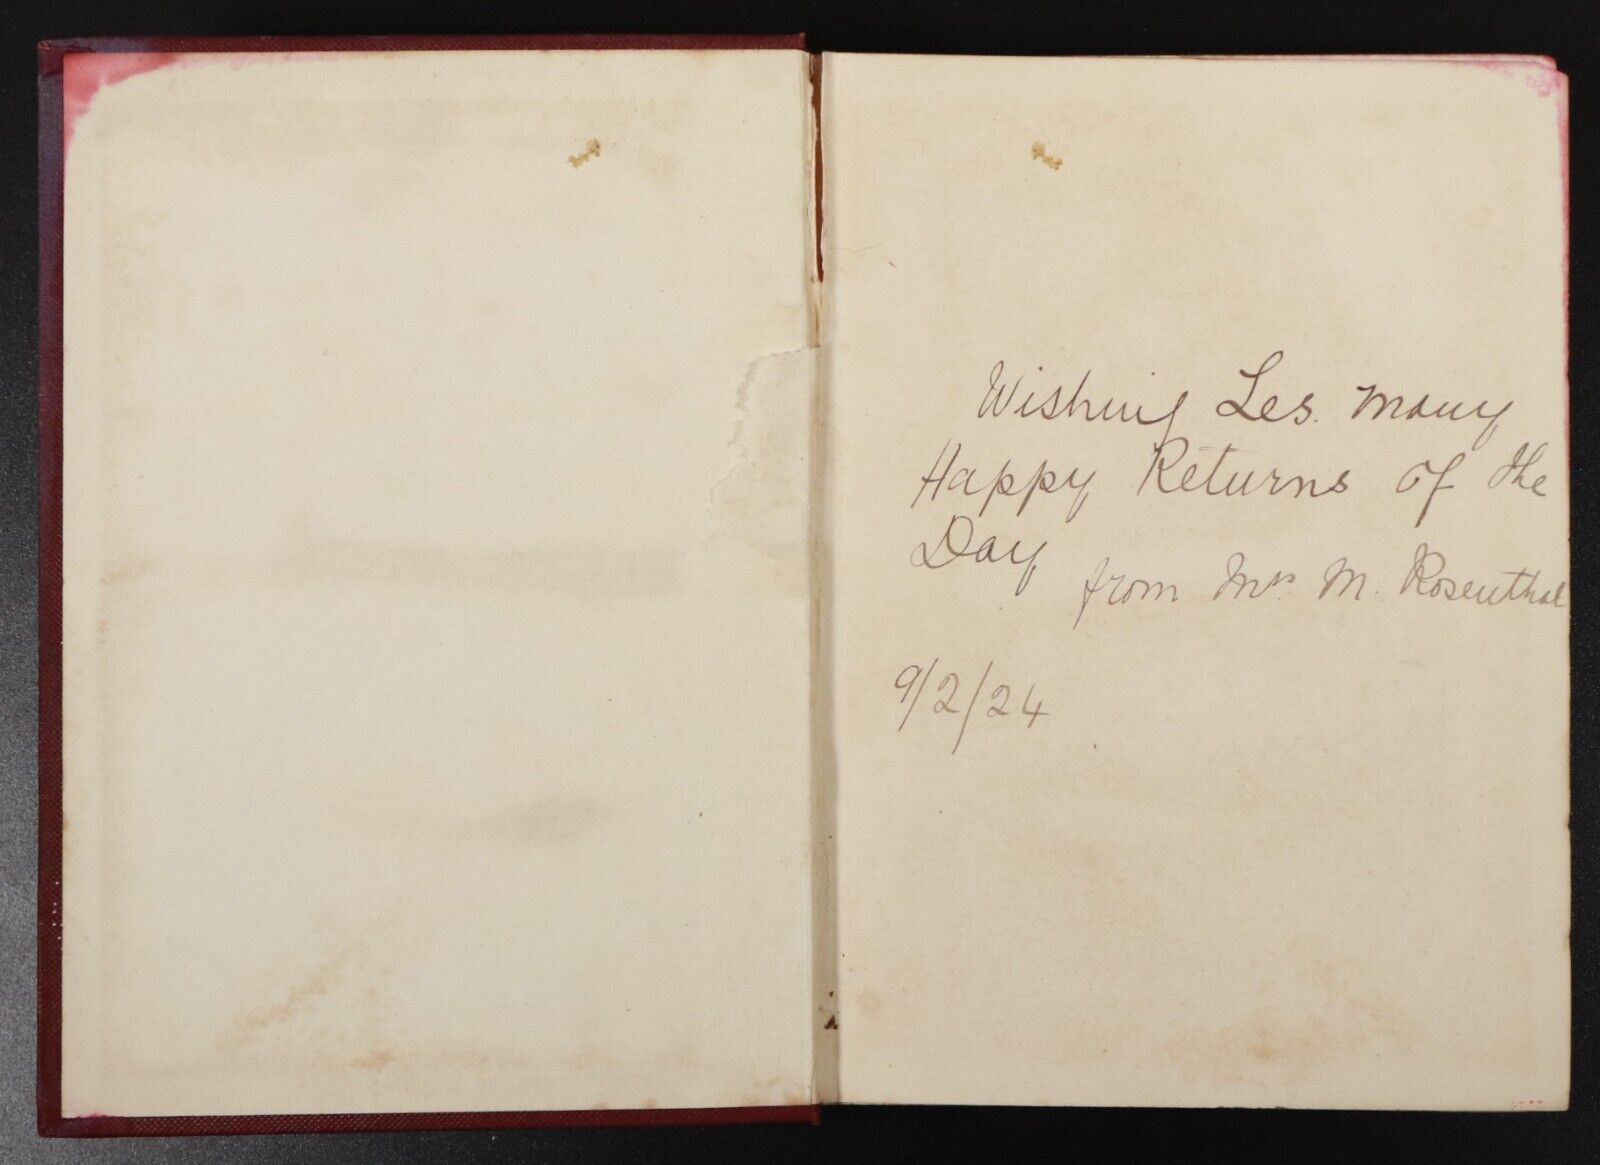 Wishing Les. many
Happy Returns of the
Day
from Mrs. M. Rosenthal
9/2/24